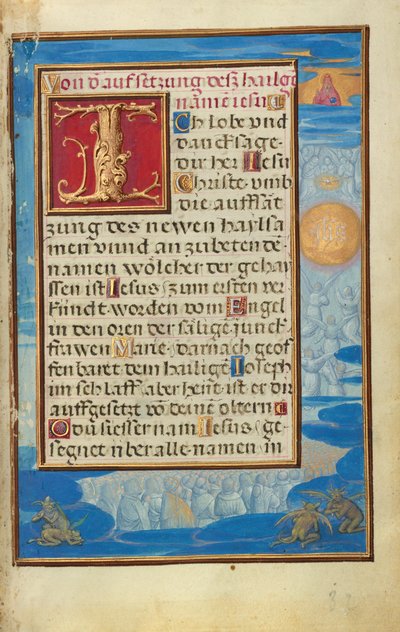 Von d̄ auf setzung desz hailgē
namē iesu
I
Ch lobe vnd
danck sage
dir her Iesu
Christe vmb
die auffsāt
zung des newen haylsa
men vnnd an zubetendē
namen wölcher der gehay
ssen ist Iesus zum ersten ver
kündt worden vom Engel
in den oren der sälige junck
frawen Marie, darnach geof
fenbaret dem hailigē Ioseph
im schlaff, aber heüt ist er dir
auffgesetzt vō deinē oltern
O du siesser nam Iesus ge
segnet über alle namen in
ihs